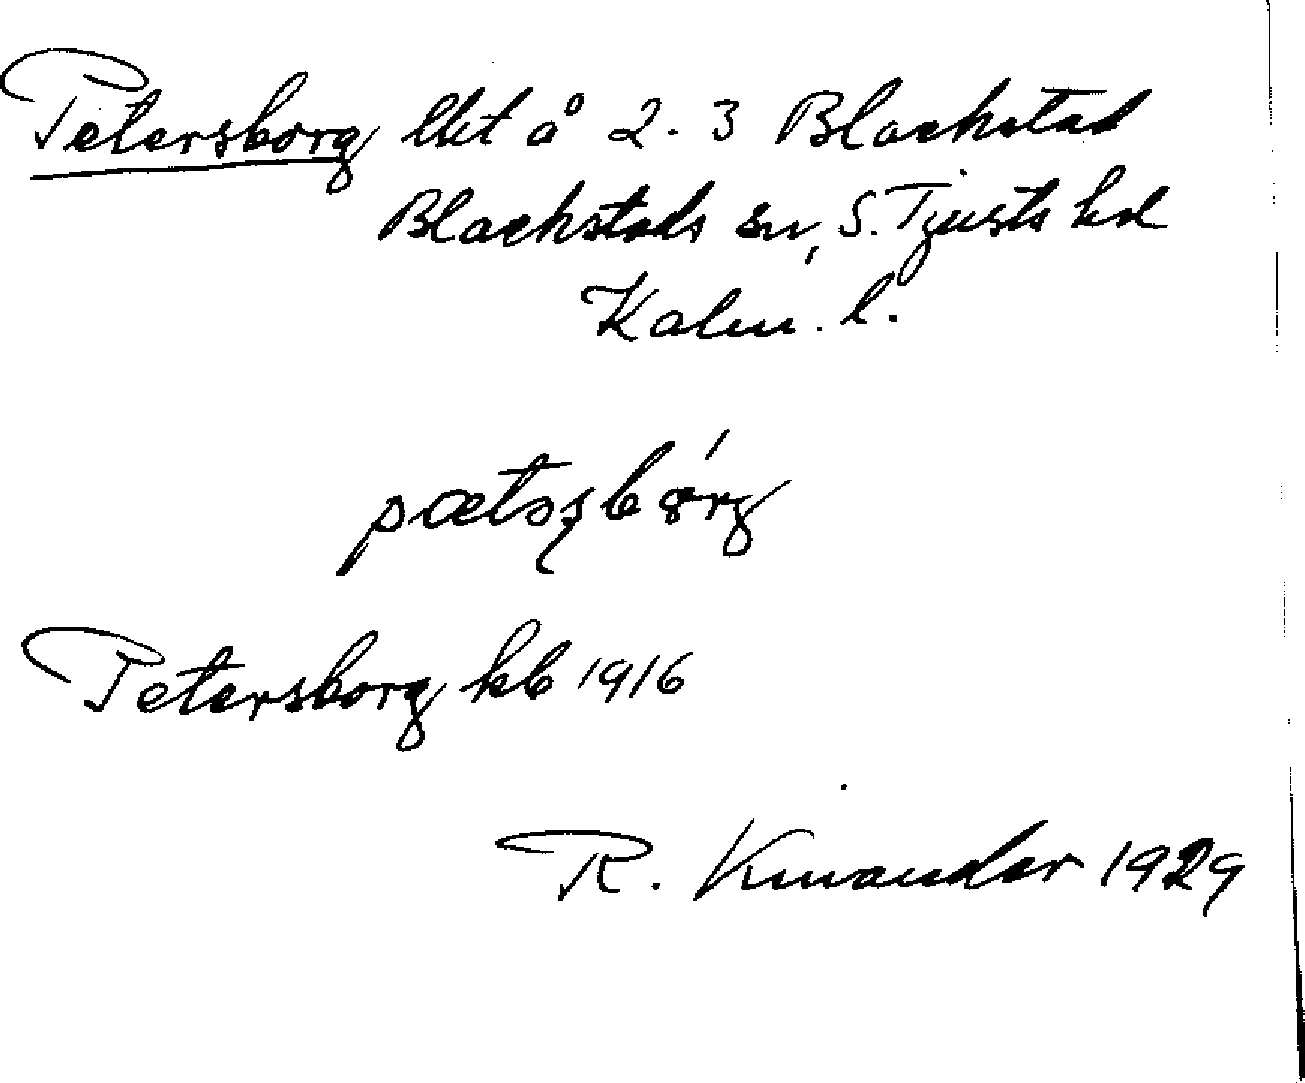 Petersborg lht å 2-3 Blackstad
Blackstads sn, S. Tjusts hd
Kalm. l.
pætəʂbórg
Petersborg kb 1916
R. Kinander 1929